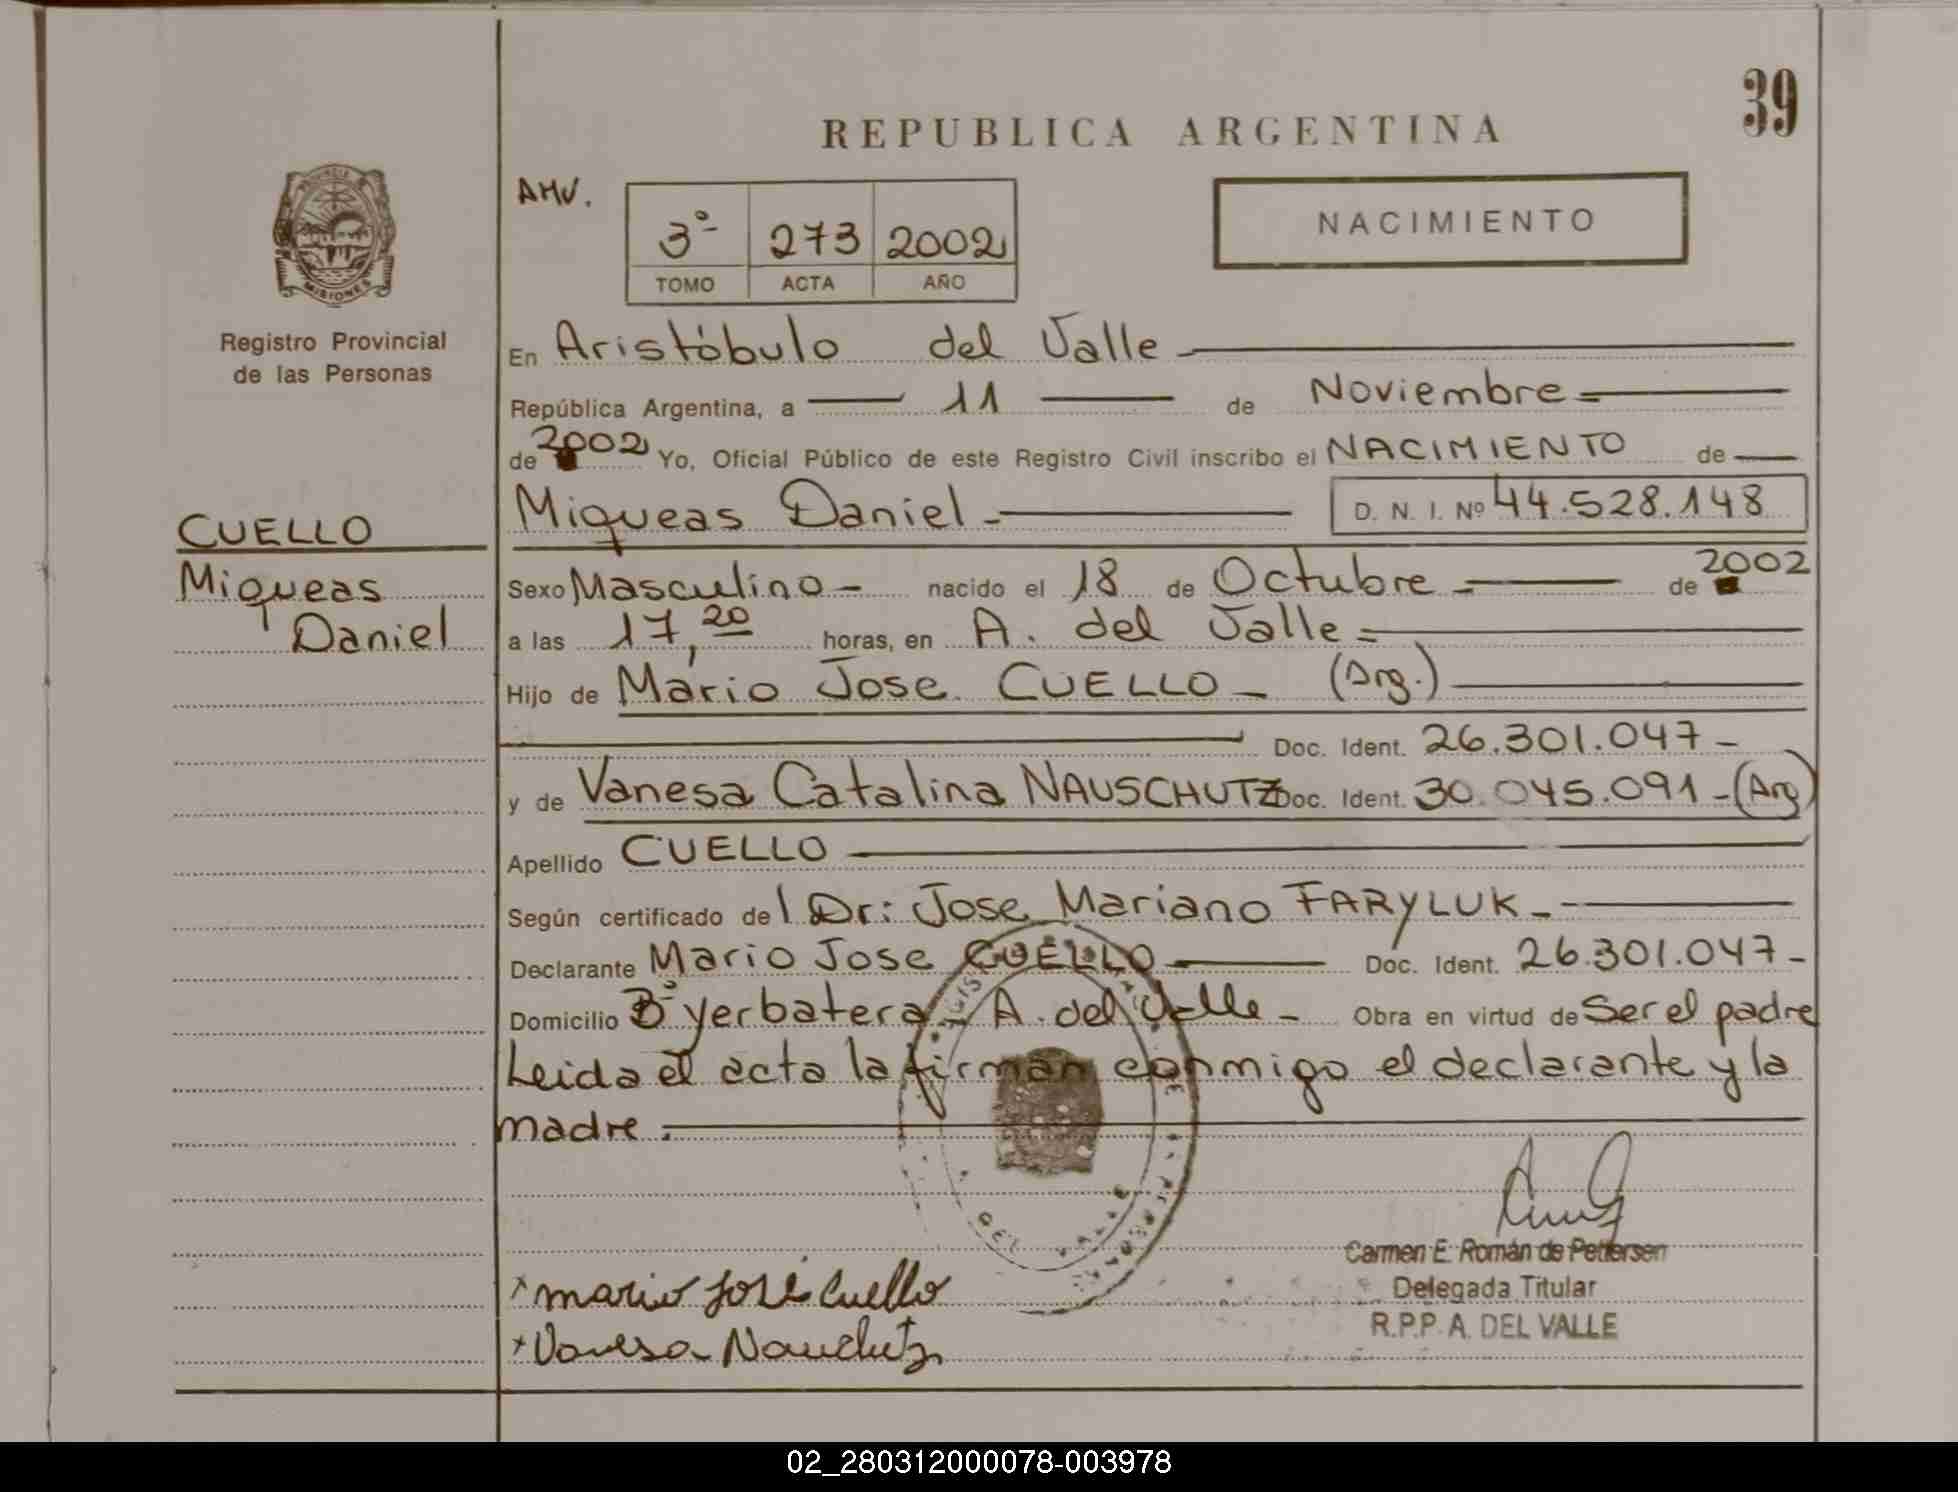 39
REPUBLICA ARGENTINA
AHV.
3º 273 2002
TOMO ACTA AÑO
NACIMIENTO
PROVINCIA
MISIONES
Registro Provincial
de las Personas
CUELLO
Miqueas
Daniel
En Aristóbulo del Valle
República Argentina, a 11 de Noviembre
de 2002 Yo, Oficial Público de este Registro Civil inscribo el NACIMIENTO de
Miqueas Daniel D. N. I. Nº 44.528.148
Sexo Masculino nacido el 18 de Octubre de 2002
a las 17,20 horas, en A. del Valle
Hijo de Mario Jose CUELLO (Arg.)
Doc. Ident. 26.301.047
y de Vanesa Catalina NAUSCHUTZ Doc. Ident. 30.045.091 (Arg)
Apellido CUELLO
Según certificado del Dr: Jose Mariano FARYLUK
Declarante Mario Jose CUELLO Doc. Ident. 26.301.047
Domicilio Bº yerbatera A. del Valle Obra en virtud de Ser el padre
Leida el acta la firman conmigo el declarante y la
madre.
DEL VALLE
Carmen E. Román de Pettersen
Delegada Titular
R.P.P. A. DEL VALLE
mario José Cuello
Vanesa Nauchutz
02_280312000078-003978